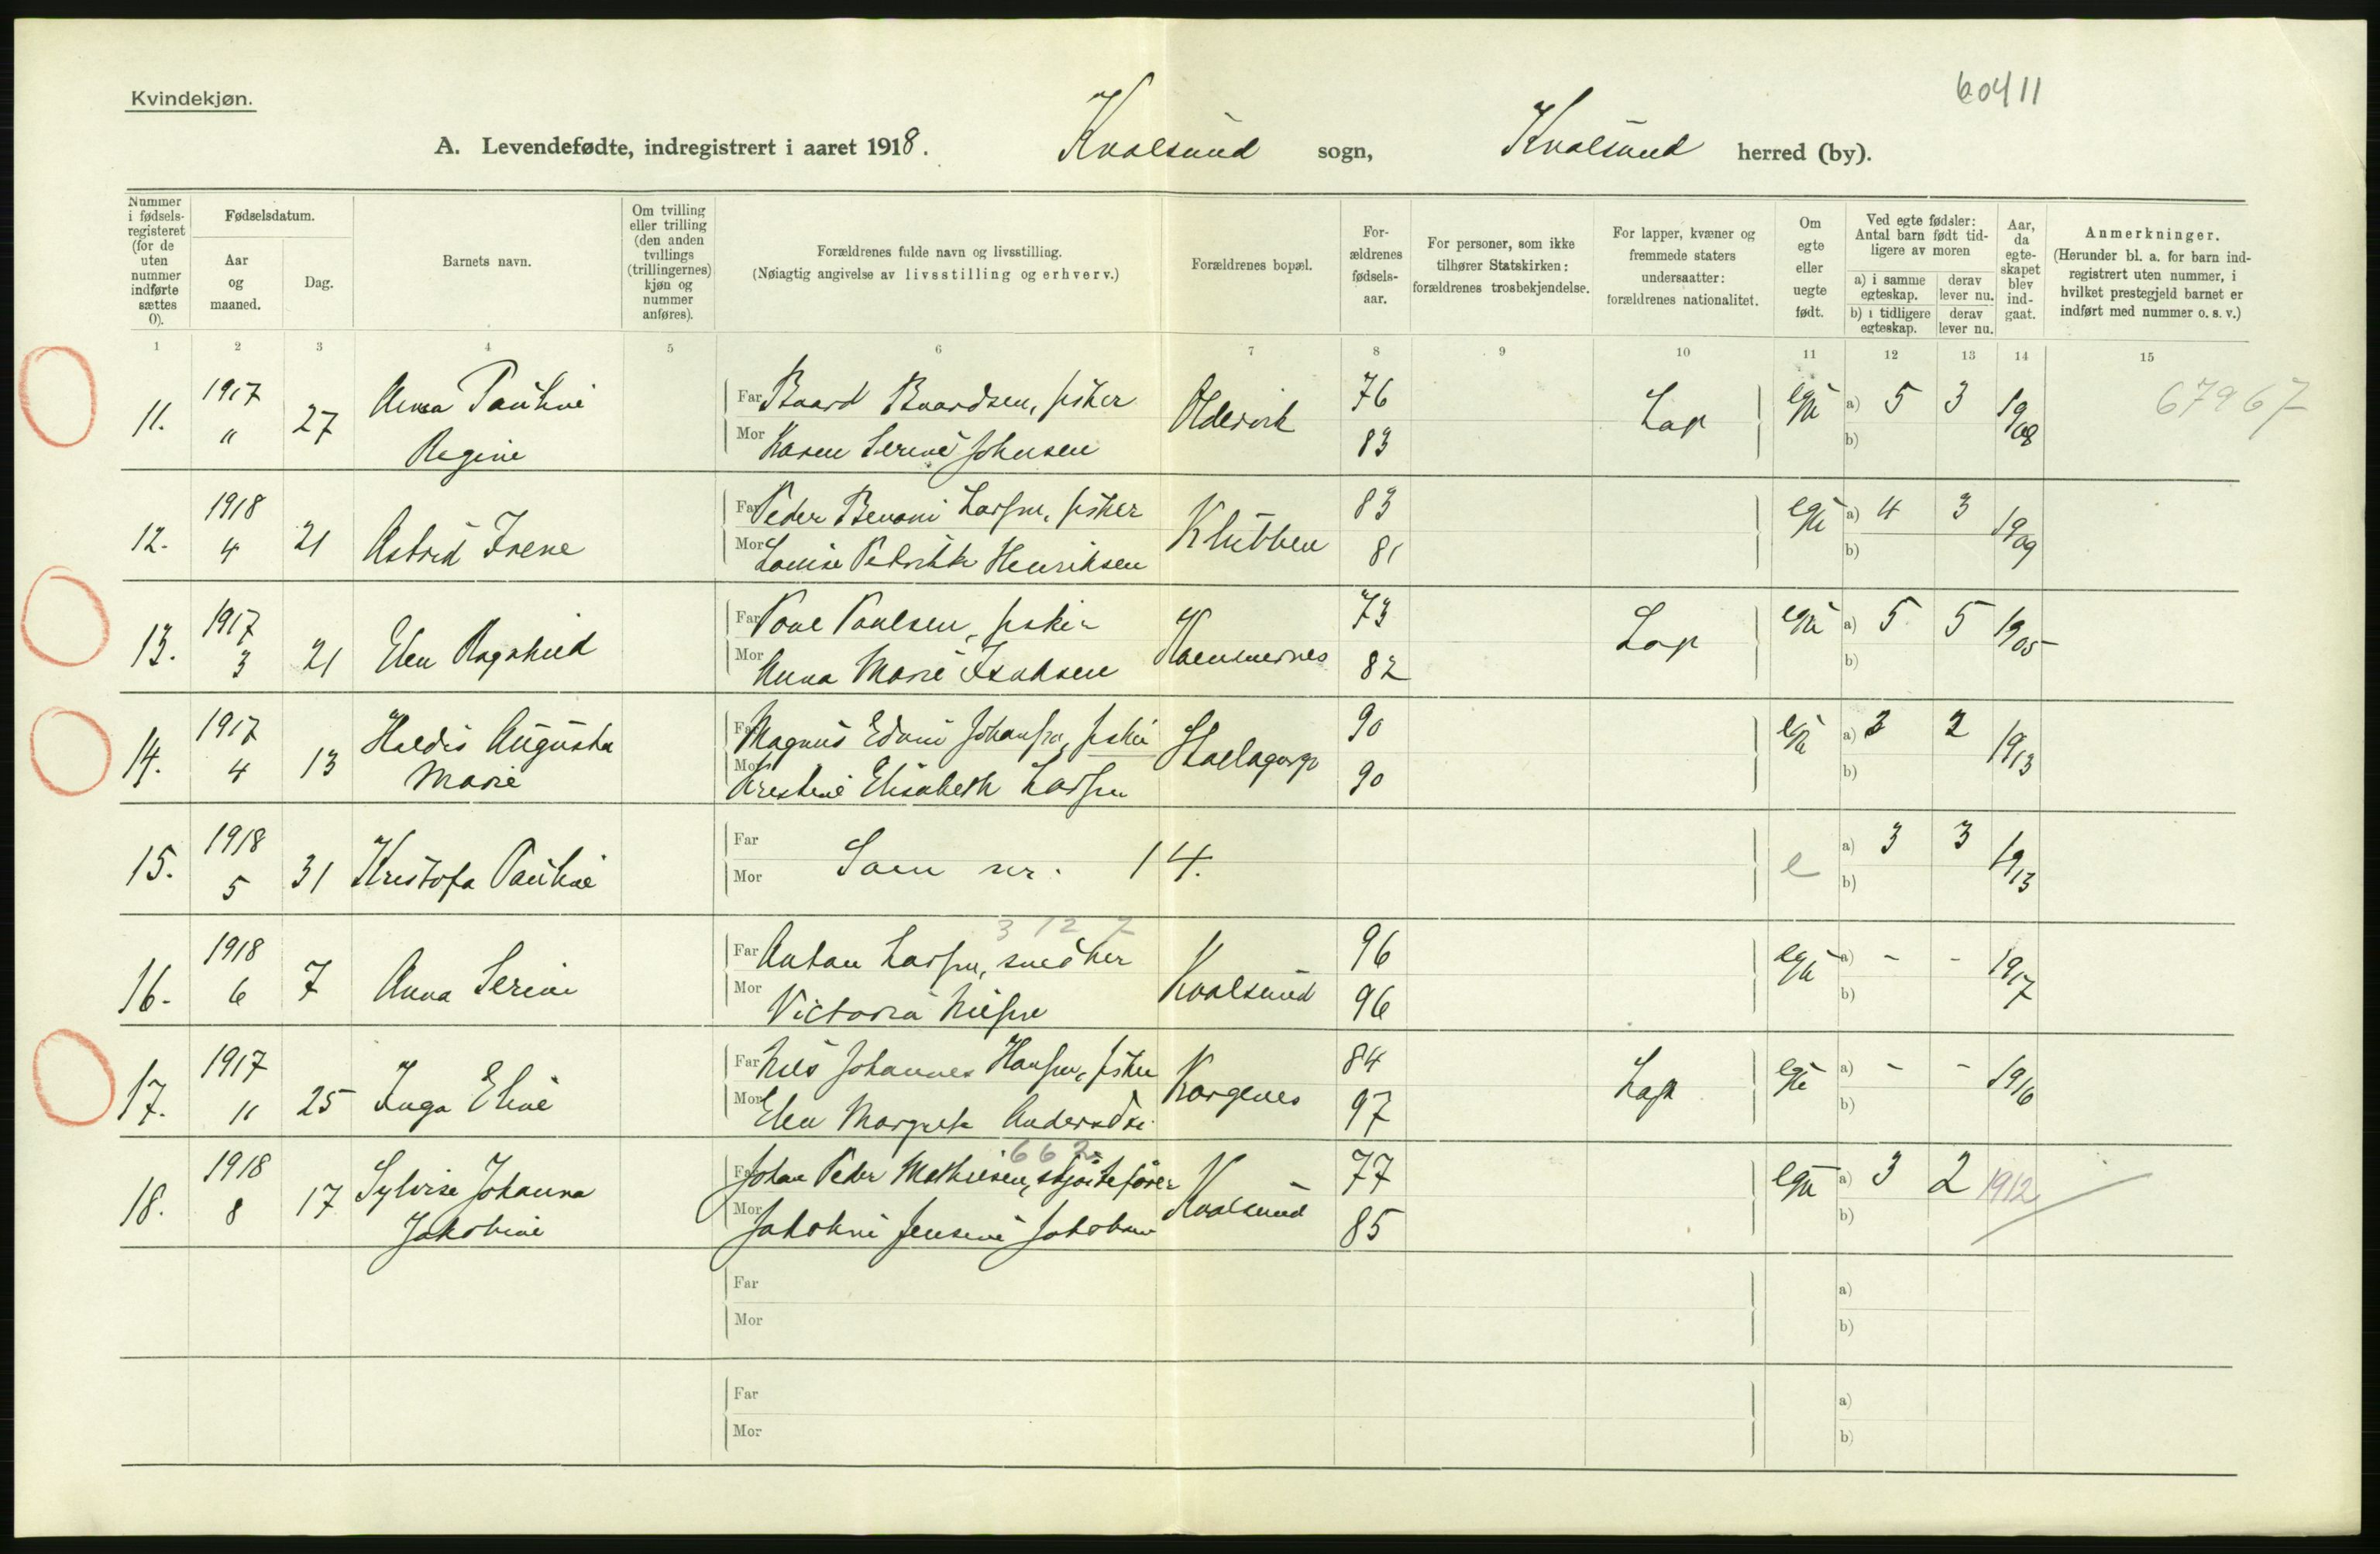 Kvindekjøn.
60411
A. Levendefødte, indregistrert i aaret 1918. Kvalsund sogn, Kvalsund herred (by).
Nummer i fødsels-registeret (for de uten nummer indførte sættes 0).
Fødselsdatum.
Aar og maaned.
Dag.
Barnets navn.
Om tvilling eller trilling (den anden tvillings (trillingernes) kjøn og nummer anføres).
Forældrenes fulde navn og livsstilling.
(Nøiagtig angivelse av livsstilling og erhverv.)
Forældrenes bopæl.
For-ældrenes fødsels-aar.
For personer, som ikke tilhører Statskirken: forældrenes trosbekjendelse.
For lapper, kvæner og fremmede staters undersaatter: forældrenes nationalitet.
Om egte eller uegte født.
Ved egte fødsler: Antal barn født tid-ligere av moren
a) i samme egteskap. derav lever nu.
b) i tidligere egteskap. derav lever nu.
Aar, da egte-skapet blev ind-gaat.
Anmerkninger.
(Herunder bl. a. for barn ind-registrert uten nummer, i hvilket prestegjeld barnet er indført med nummer o. s. v.)
1 2 3 4 5 6 7 8 9 10 11 12 13 14 15
11. 1917 11 27 Anna Pauline Regine
Far Baard Baardsen, fisker Oldervik 76 Lap egte a) 5 3 1908 67967
Mor Karen Serine Johnsen 83 b)
12. 1918 4 21 Astrid Irene
Far Peder Benoni Larsen, fisker Klubben 83 egte a) 4 3 1909
Mor Louise Petrikke Henriksen 81 b)
13. 1917 3 21 Elen Ragnhild
Far Poul Poulsen, fisker 73 Lap egte a) 5 5 1905
Mor Anna Marie Isaksen 82 b)
14. 1917 4 13 Haldis Augusta Marie
Far Magnus Edvin Johansen, fisker 90 egte a) 2 2 1913
Mor Kristine Elisabeth Larsen 90 b)
15. 1918 5 31 Kristofa Pauline
Far Som nr. 14. e a) 3 3 1913
Mor b)
3 12 7
16. 1918 6 7 Anna Serine
Far Anton Larsen, snedker Kvalsund 96 egte a) - - 1917
Mor Victoria Nilsen 96 b)
17. 1917 11 25 Inga Eline
Far Nils Johannes Hansen, fisker Kargenes 84 Lap egte a) - - 1916
Mor Elen Margrete Andersdtr. 97 b)
662
18. 1918 8 17 Sylvise Johanna Jakobine
Far Johan Peder Mathisen, skjøitefører Kvalsund 77 egte a) 3 2 1912
Mor Jakobine Jensine Jakobsen 85 b)
Far a)
Mor b)
Far a)
Mor b)